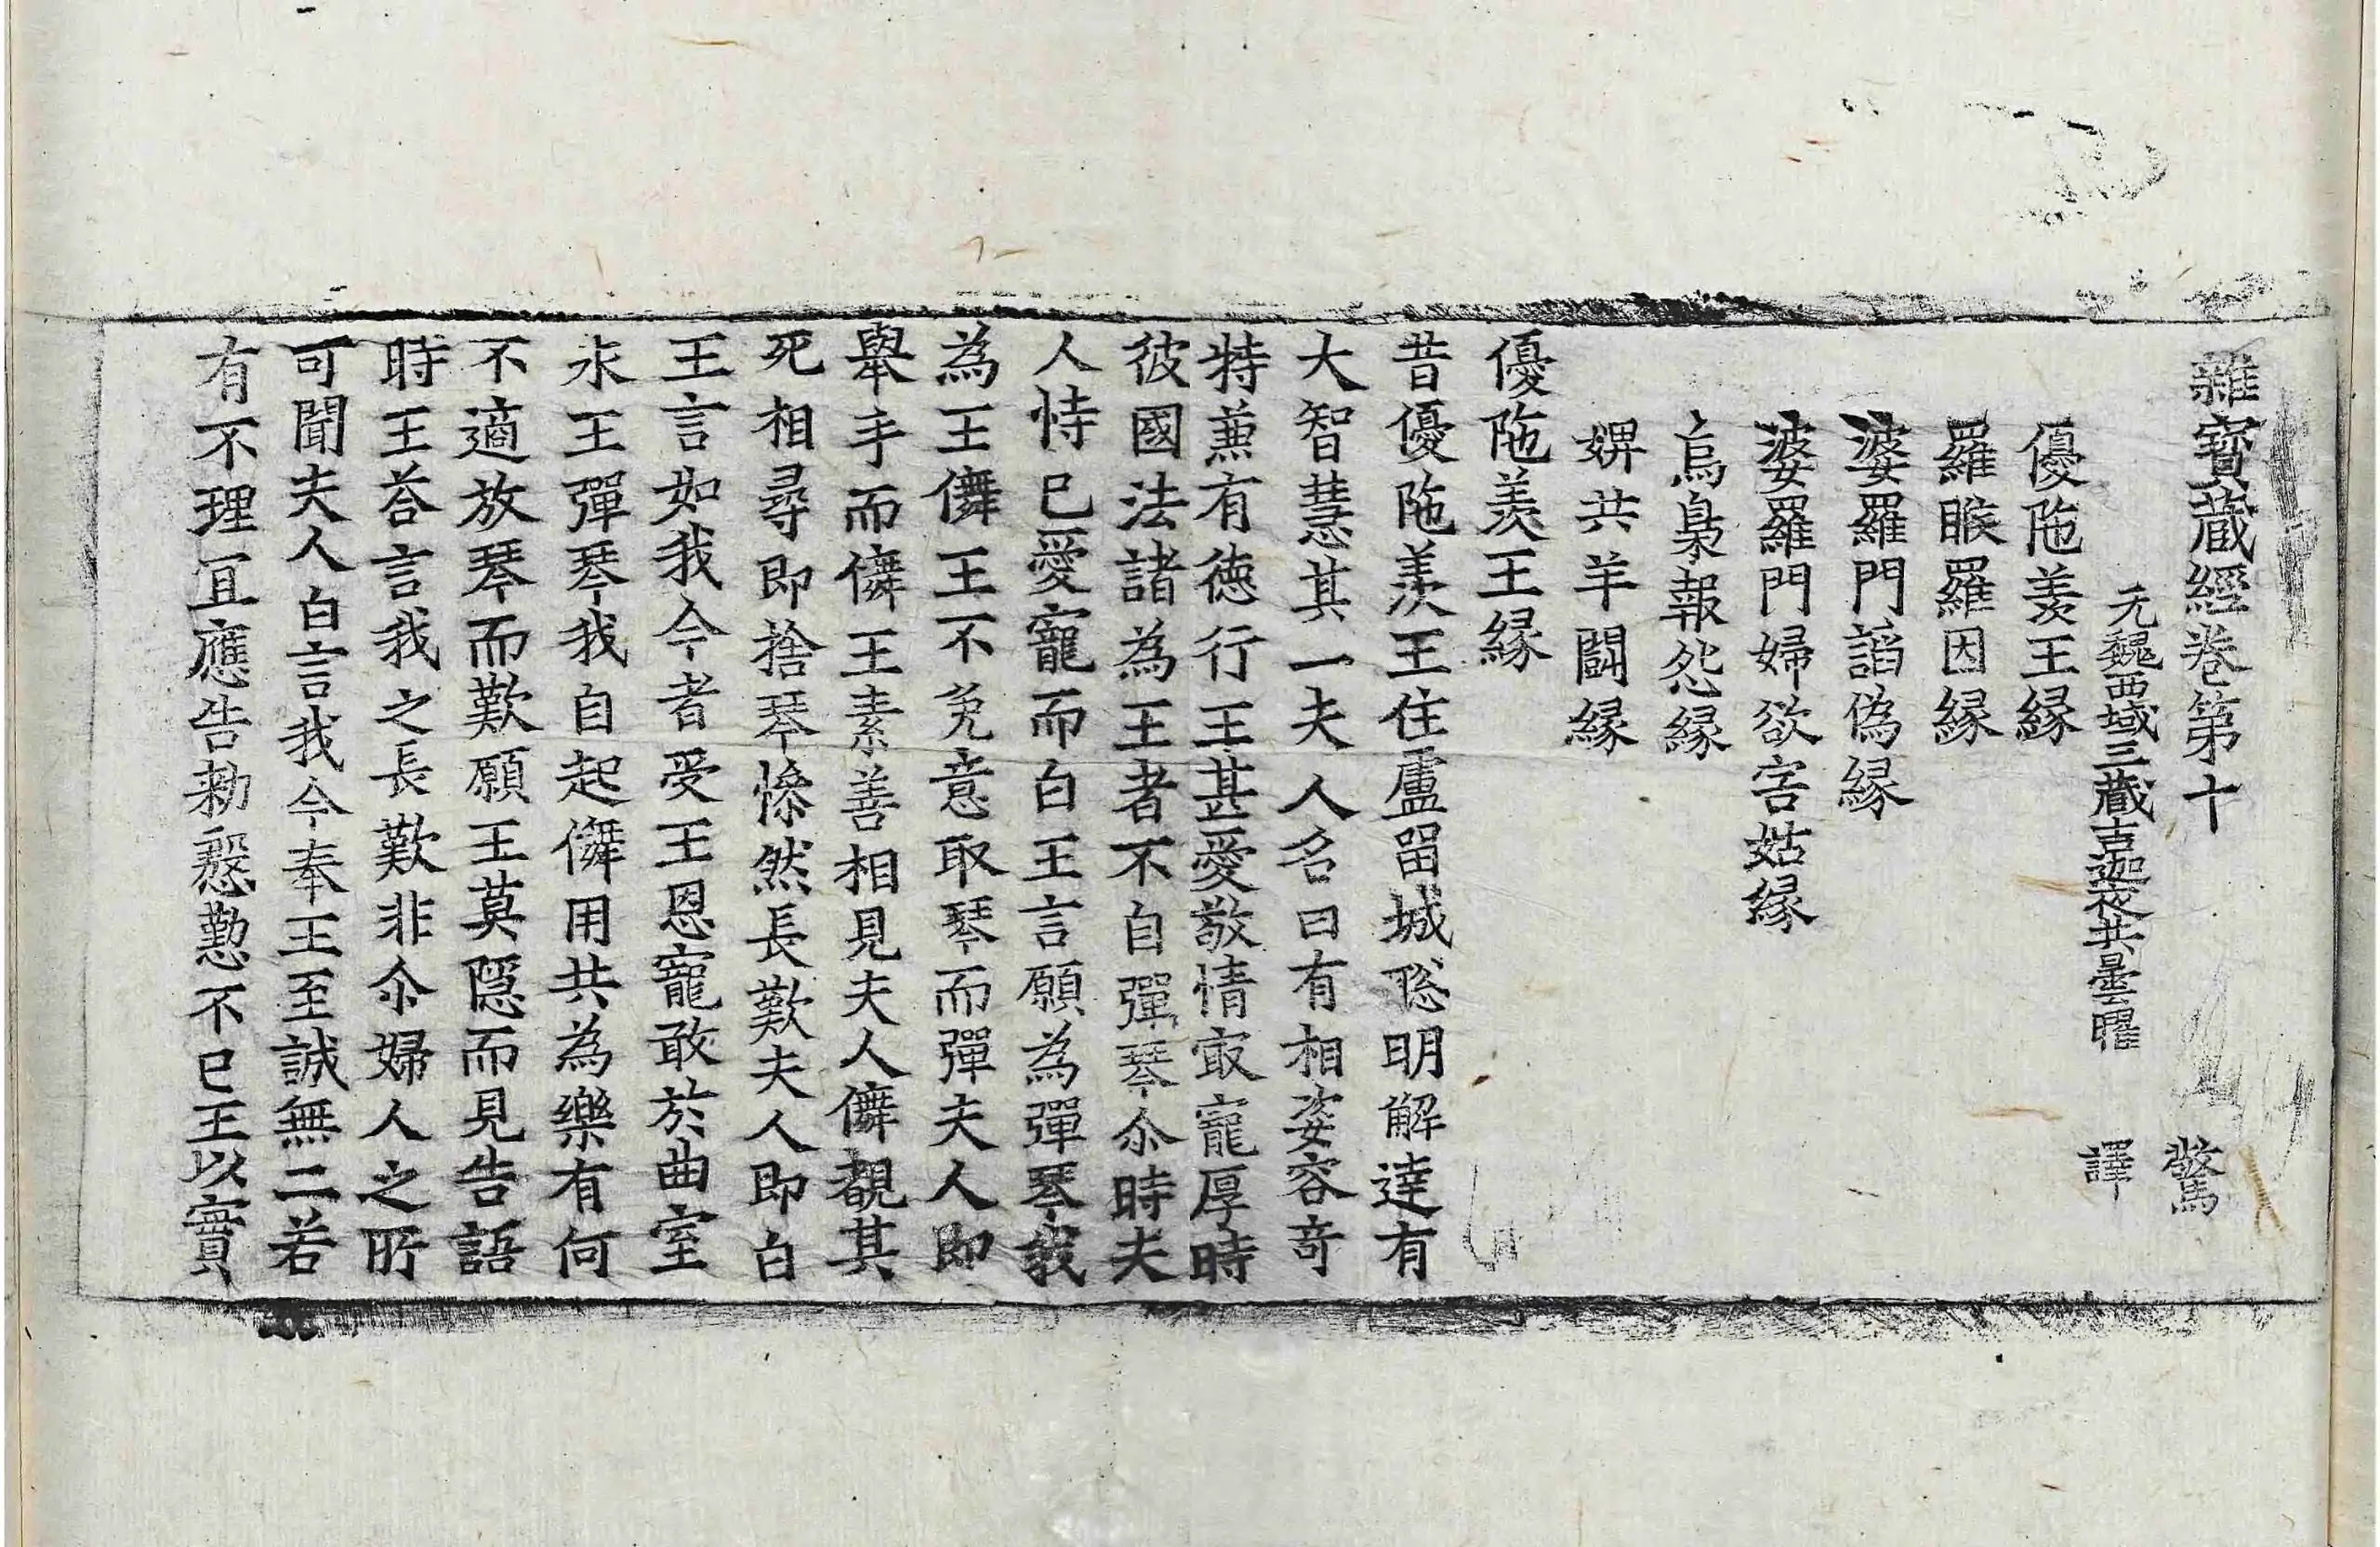 雜寶藏經卷第十 驚
元魏西域三藏吉迦夜共曇曜 譯
優陁羨王緣
羅睺羅因緣
婆羅門諂偽緣
婆羅門婦欲害姑緣
烏梟報怨緣
婢共羊鬪緣
優陁羨王緣
昔優陁羨王住盧留城聦明解達有
大智慧其一夫人名曰有相姿容奇
特兼有德行王甚愛敬情㝡寵厚時
彼國法諸為王者不自彈琴尒時夫
人恃已愛寵而白王言願為彈琴我
為王儛王不免意取琴而彈夫人即
舉手而儛王素善相見夫人儛覩其
死相尋即捨琴慘然長歎夫人即白
王言如我今者受王恩寵敢於曲室
求王彈琴我自起儛用共為樂有何
不適放琴而歎願王莫隱而見告語
時王荅言我之長歎非尒婦人之所
可聞夫人白言我今奉王至誠無二若
有不理冝應告勑慇懃不已王以實